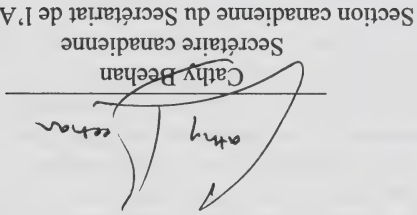 Cathy Beehan
Cathy Beehan
Secrétaire canadienne
Section canadienne du Secrétariat de l'A